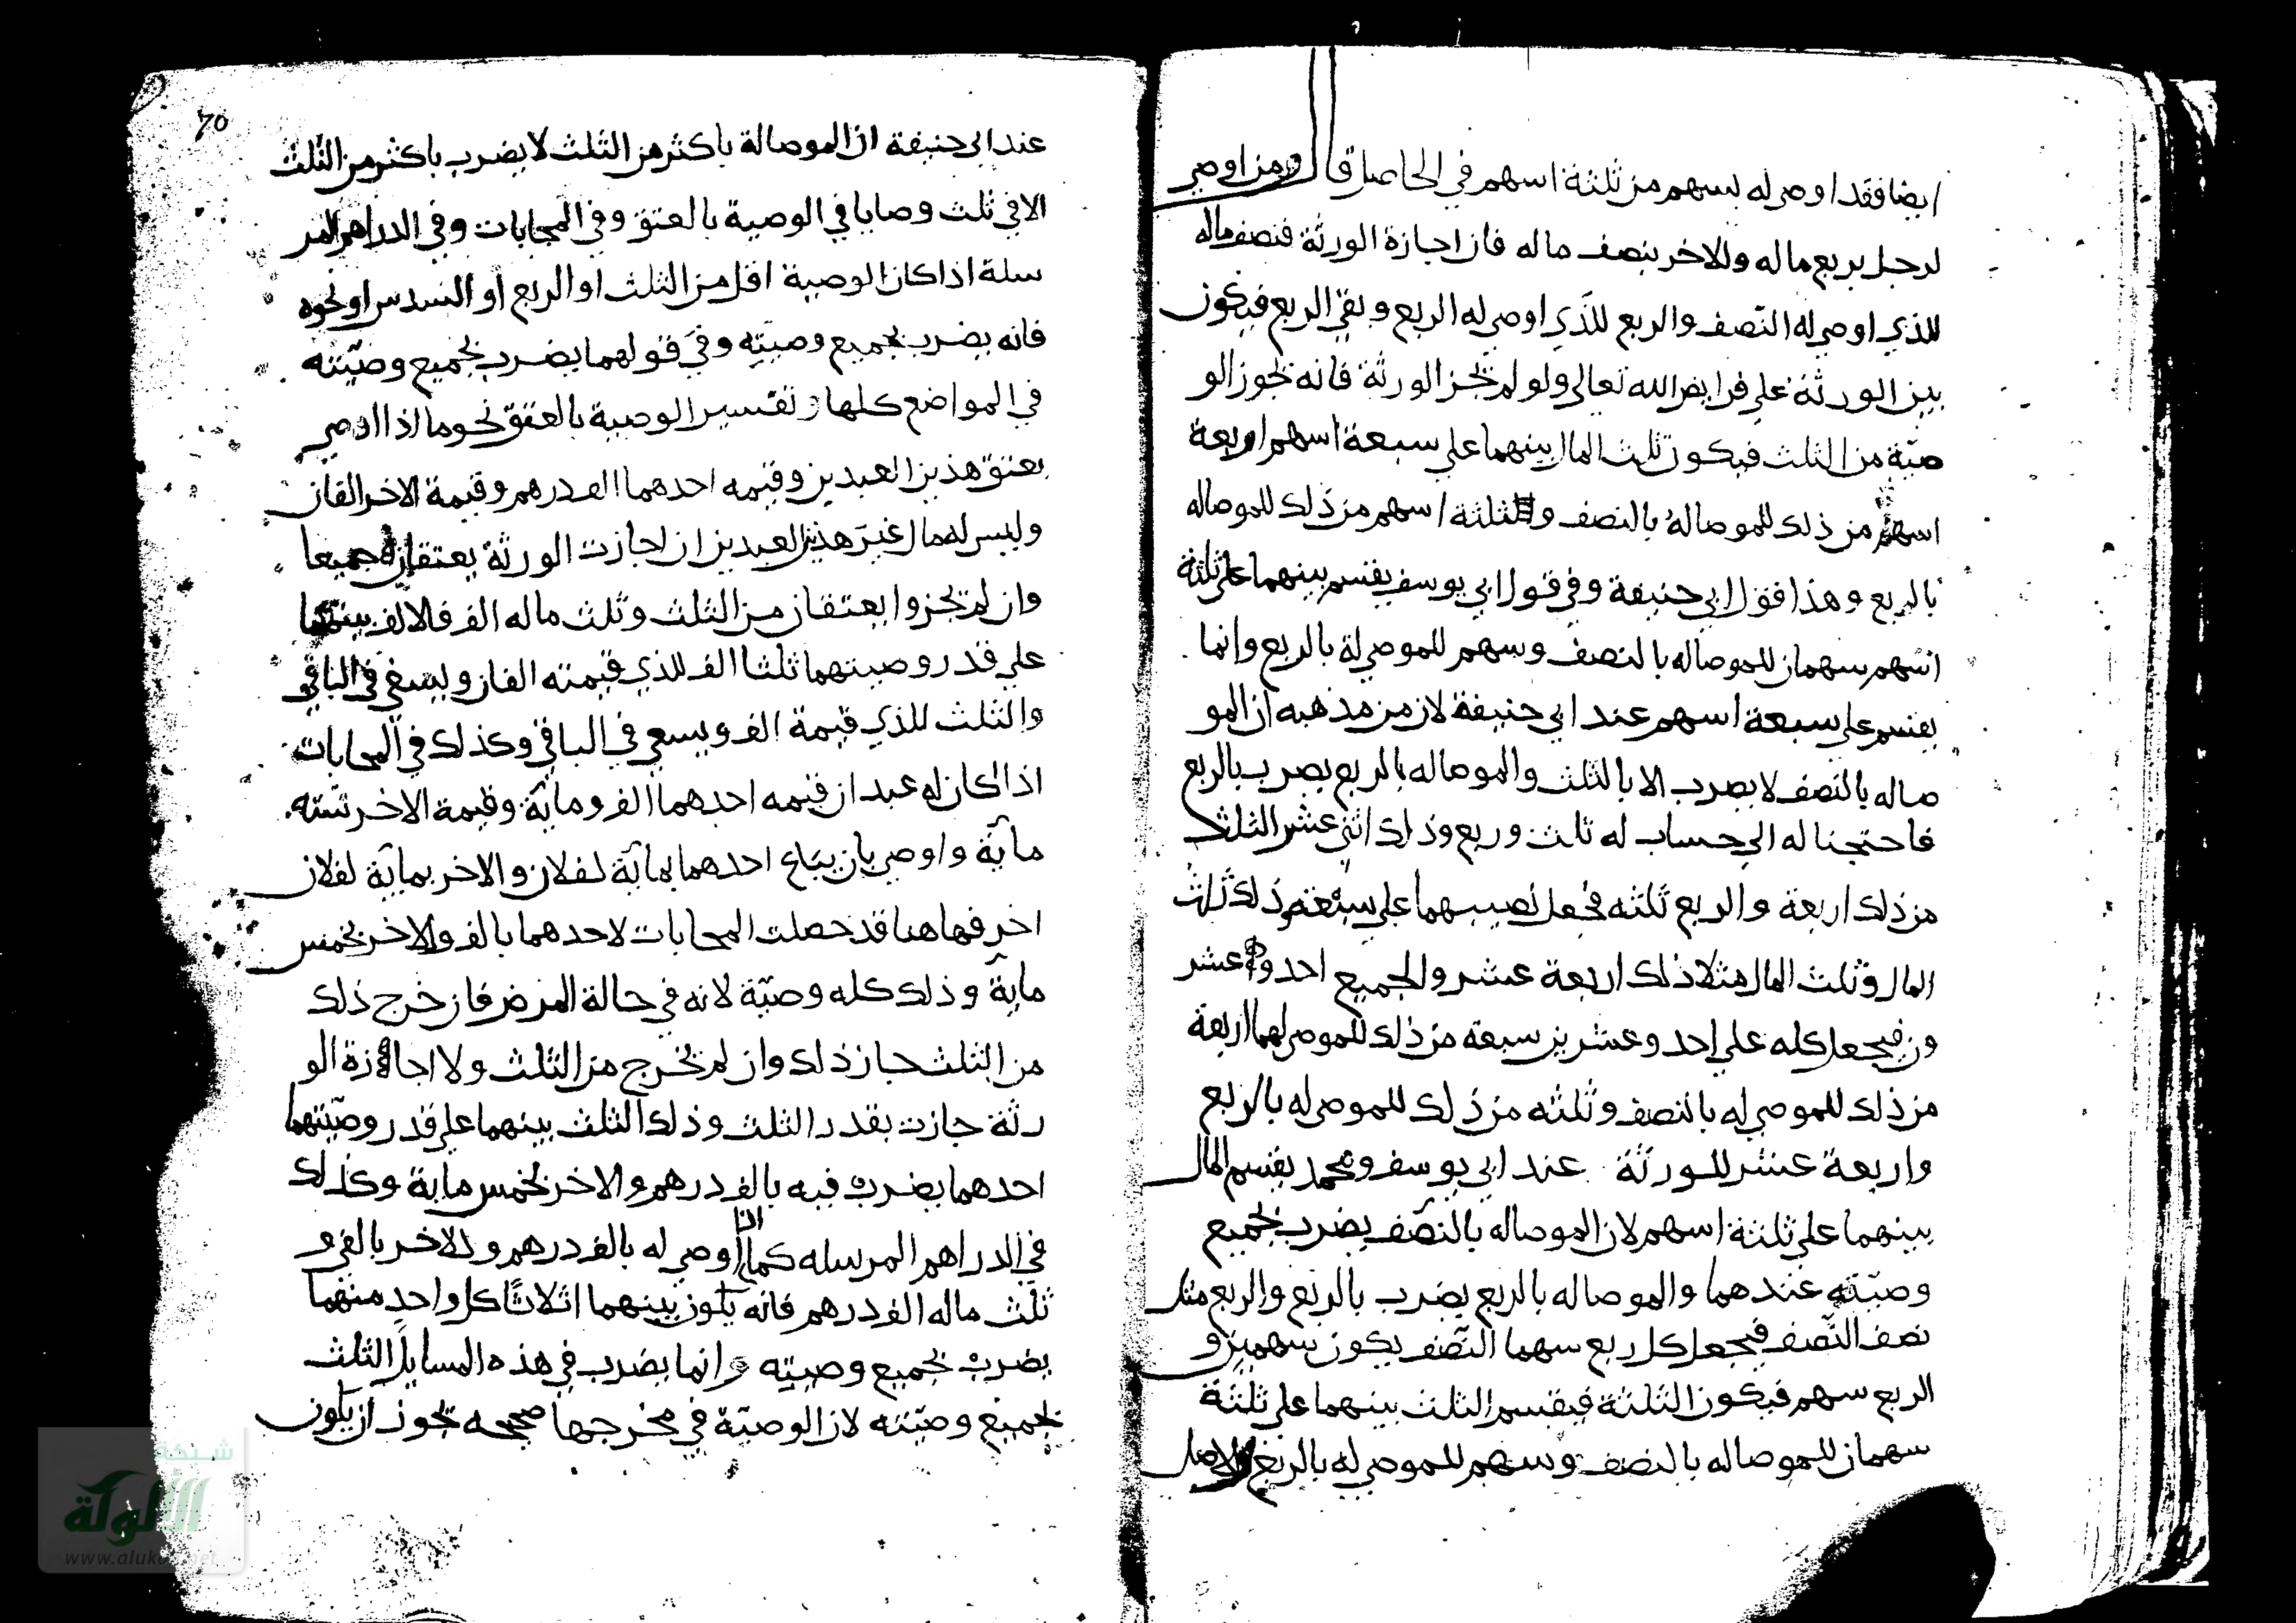 ايضا فقد اوصى له بسهم من ثلثة اسهم في الحاصل قال ومن اوصي
لرجل بربع ماله وللاخر بنصف ماله فان اجازة الورثة فنصف ماله
للذي اوصي له النصف والربع للذي اوصي له الربع وبقي الربع فيكون
بين الورثة علي فرايض الله تعالى ولو لم تجز الورثة فانه تجوز الو
صية من الثلث فيكون ثلث المال بينهما علي سبعة اسهم اربعة
اسهم من ذلك للموصاله بالنصف والثلثة اسهم من ذلك للموصاله
بالربع وهذا قول ابي حنيفة وفي قول ابي يوسف يقسم بينهما علي ثلثة
اسهم سهمان للموصاله بالنصف وسهم للموصي لة بالربع وانما
يقسم علي سبعة اسهم عند ابي حنيفة لان من مذهبه ان المو
صاله بالنصف لا يضرب الا بالثلث والموصاله بالربع يضرب بالربع
فاحتجنا له الي حساب له ثلث وربع وذلك اثني عشر الثلث
من ذلك اربعة والربع ثلثه فجعل نصيبهما علي سبعة وذلك ثلث
المال وثلث المال مثلا ذلك اربعة عشر والجميع احد وعشر
ون فيجعل كله علي احد وعشرين سبعة من ذلك للموصي لهما اربعة
من ذلك للموصي له بالنصف وثلثه من ذلك للموصي له بالربع
واربعة عشر للورثة عند ابي يوسف ومحمد يقسم المال
بينهما علي ثلثة اسهم لان الموصاله بالنصف يضرب بجميع
وصيته عندهما والموصاله بالربع يضرب بالربع والربع مثل
نصف النصف فيجعل كل ربع سهما النصف يكون سهمين و
الربع سهم فيكون الثلثة فيقسم الثلث بينهما علي ثلثة
سهمان للموصاله بالنصف وسهم للموصي له بالربع والاصل
70
عند ابي حنيفة ان الموصالة باكثر من الثلث لا يضرب باكثر من الثلث
الا في ثلث وصايا في الوصية بالعتق وفي المحابات وفي الدراهم المر
سلة اذا كان الوصية اقل من الثلث او الربع او السدس او نحوه
فانه يضرب بجميع وصيته وفي قولهما يضرب بجميع وصيته
في المواضع كلها وتفسير الوصية بالعتق نحو ما اذا اوصي
بعتق هذين العبدين وقيمه احدهما الف درهم وقيمة الاخر الفان
وليس له مال غير هذين العبدين ان اجازت الورثة يعتقان جميعا
وان لم تجزوا يعتقان من الثلث وثلث ماله الف فالالف بينهما
علي قدر وصيتهما ثلثا الف للذي قيمته الفان ويسعي في الباقي
والثلث للذي قيمة الف ويسعي في الباقي وكذلك في المحابات
اذا كان له عبدان قيمه احدهما الف وماية وقيمة الاخر ستته
ماية واوصي بان يباع احدهما بماية لفلان والاخر بماية لفلان
اخر فهاهنا قد حصلت المحابات لاحدهما بالف والاخر بخمس
ماية وذلك كله وصية لانه في حالة المرض فان خرج ذلك
من الثلث جاز ذلك وان لم تخرج من الثلث ولا اجازة الو
رثة جازت بقدر الثلث وذلك الثلث بينهما علي قدر وصيتهما
احدهما يضرب فيه بالف درهم والاخر بخمس ماية وكذلك
في الدراهم المرسله كما اذا اوصي له بالف درهم وللاخر بالفي و
ثلث ماله الف درهم فانه يكون بينهما اثلاثا كل واحد منهما
يضرب بجميع وصيته وانما يضرب في هذه المسايل الثلث
بجميع وصيته لان الوصية في مخرجها صحيحه تجوز ان يكون
شبكة
الألوكة
www.alukah.net